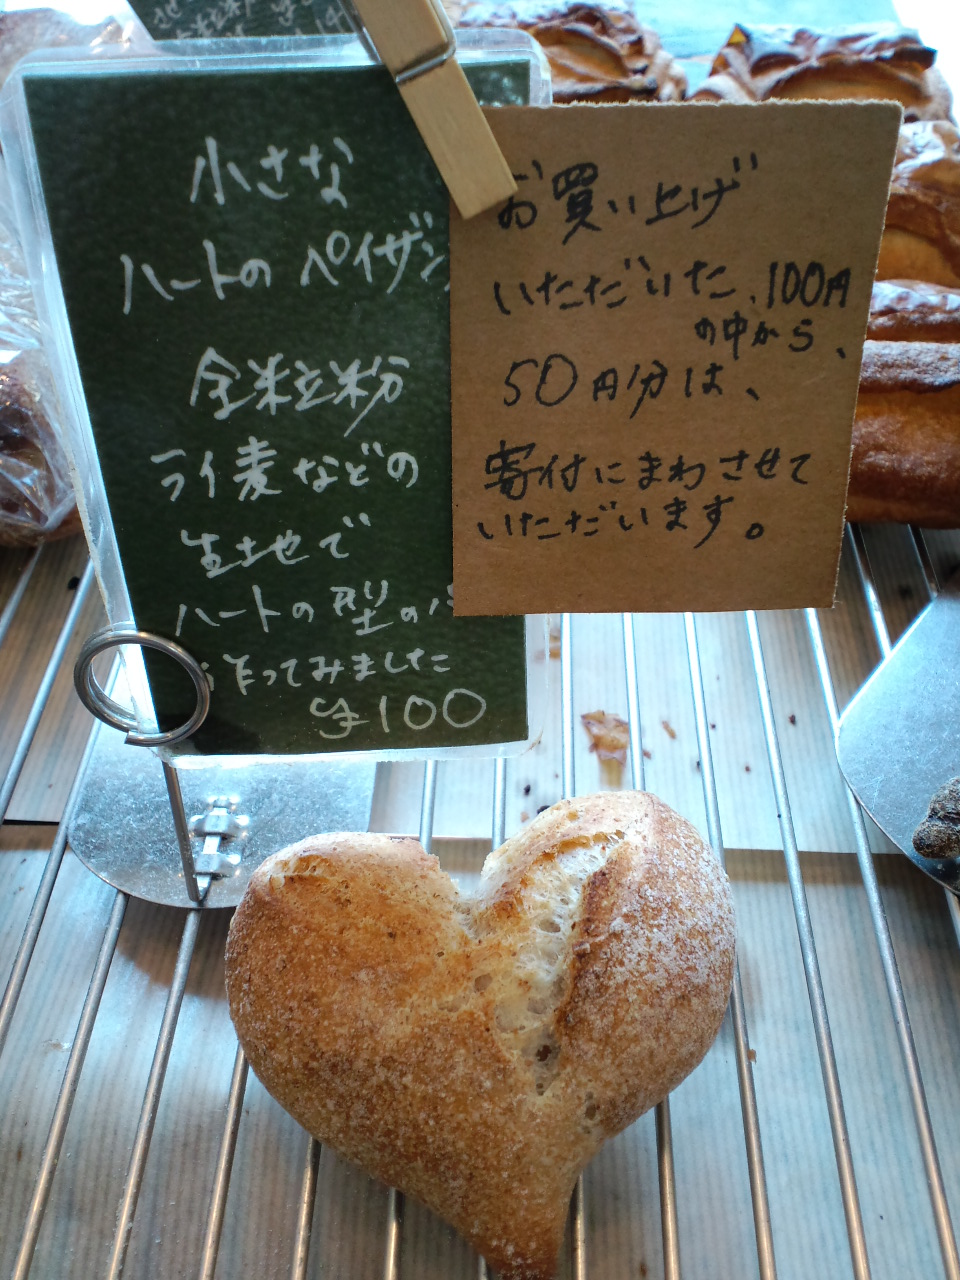 小さな
ハートの ペイザン
全粒粉
ライ麦などの
生地で
ハートの型の
作ってみました
¥100
お買い上げ
いただいた、100円
の中から、
50円分は、
寄付にまわさせて
いただいます。